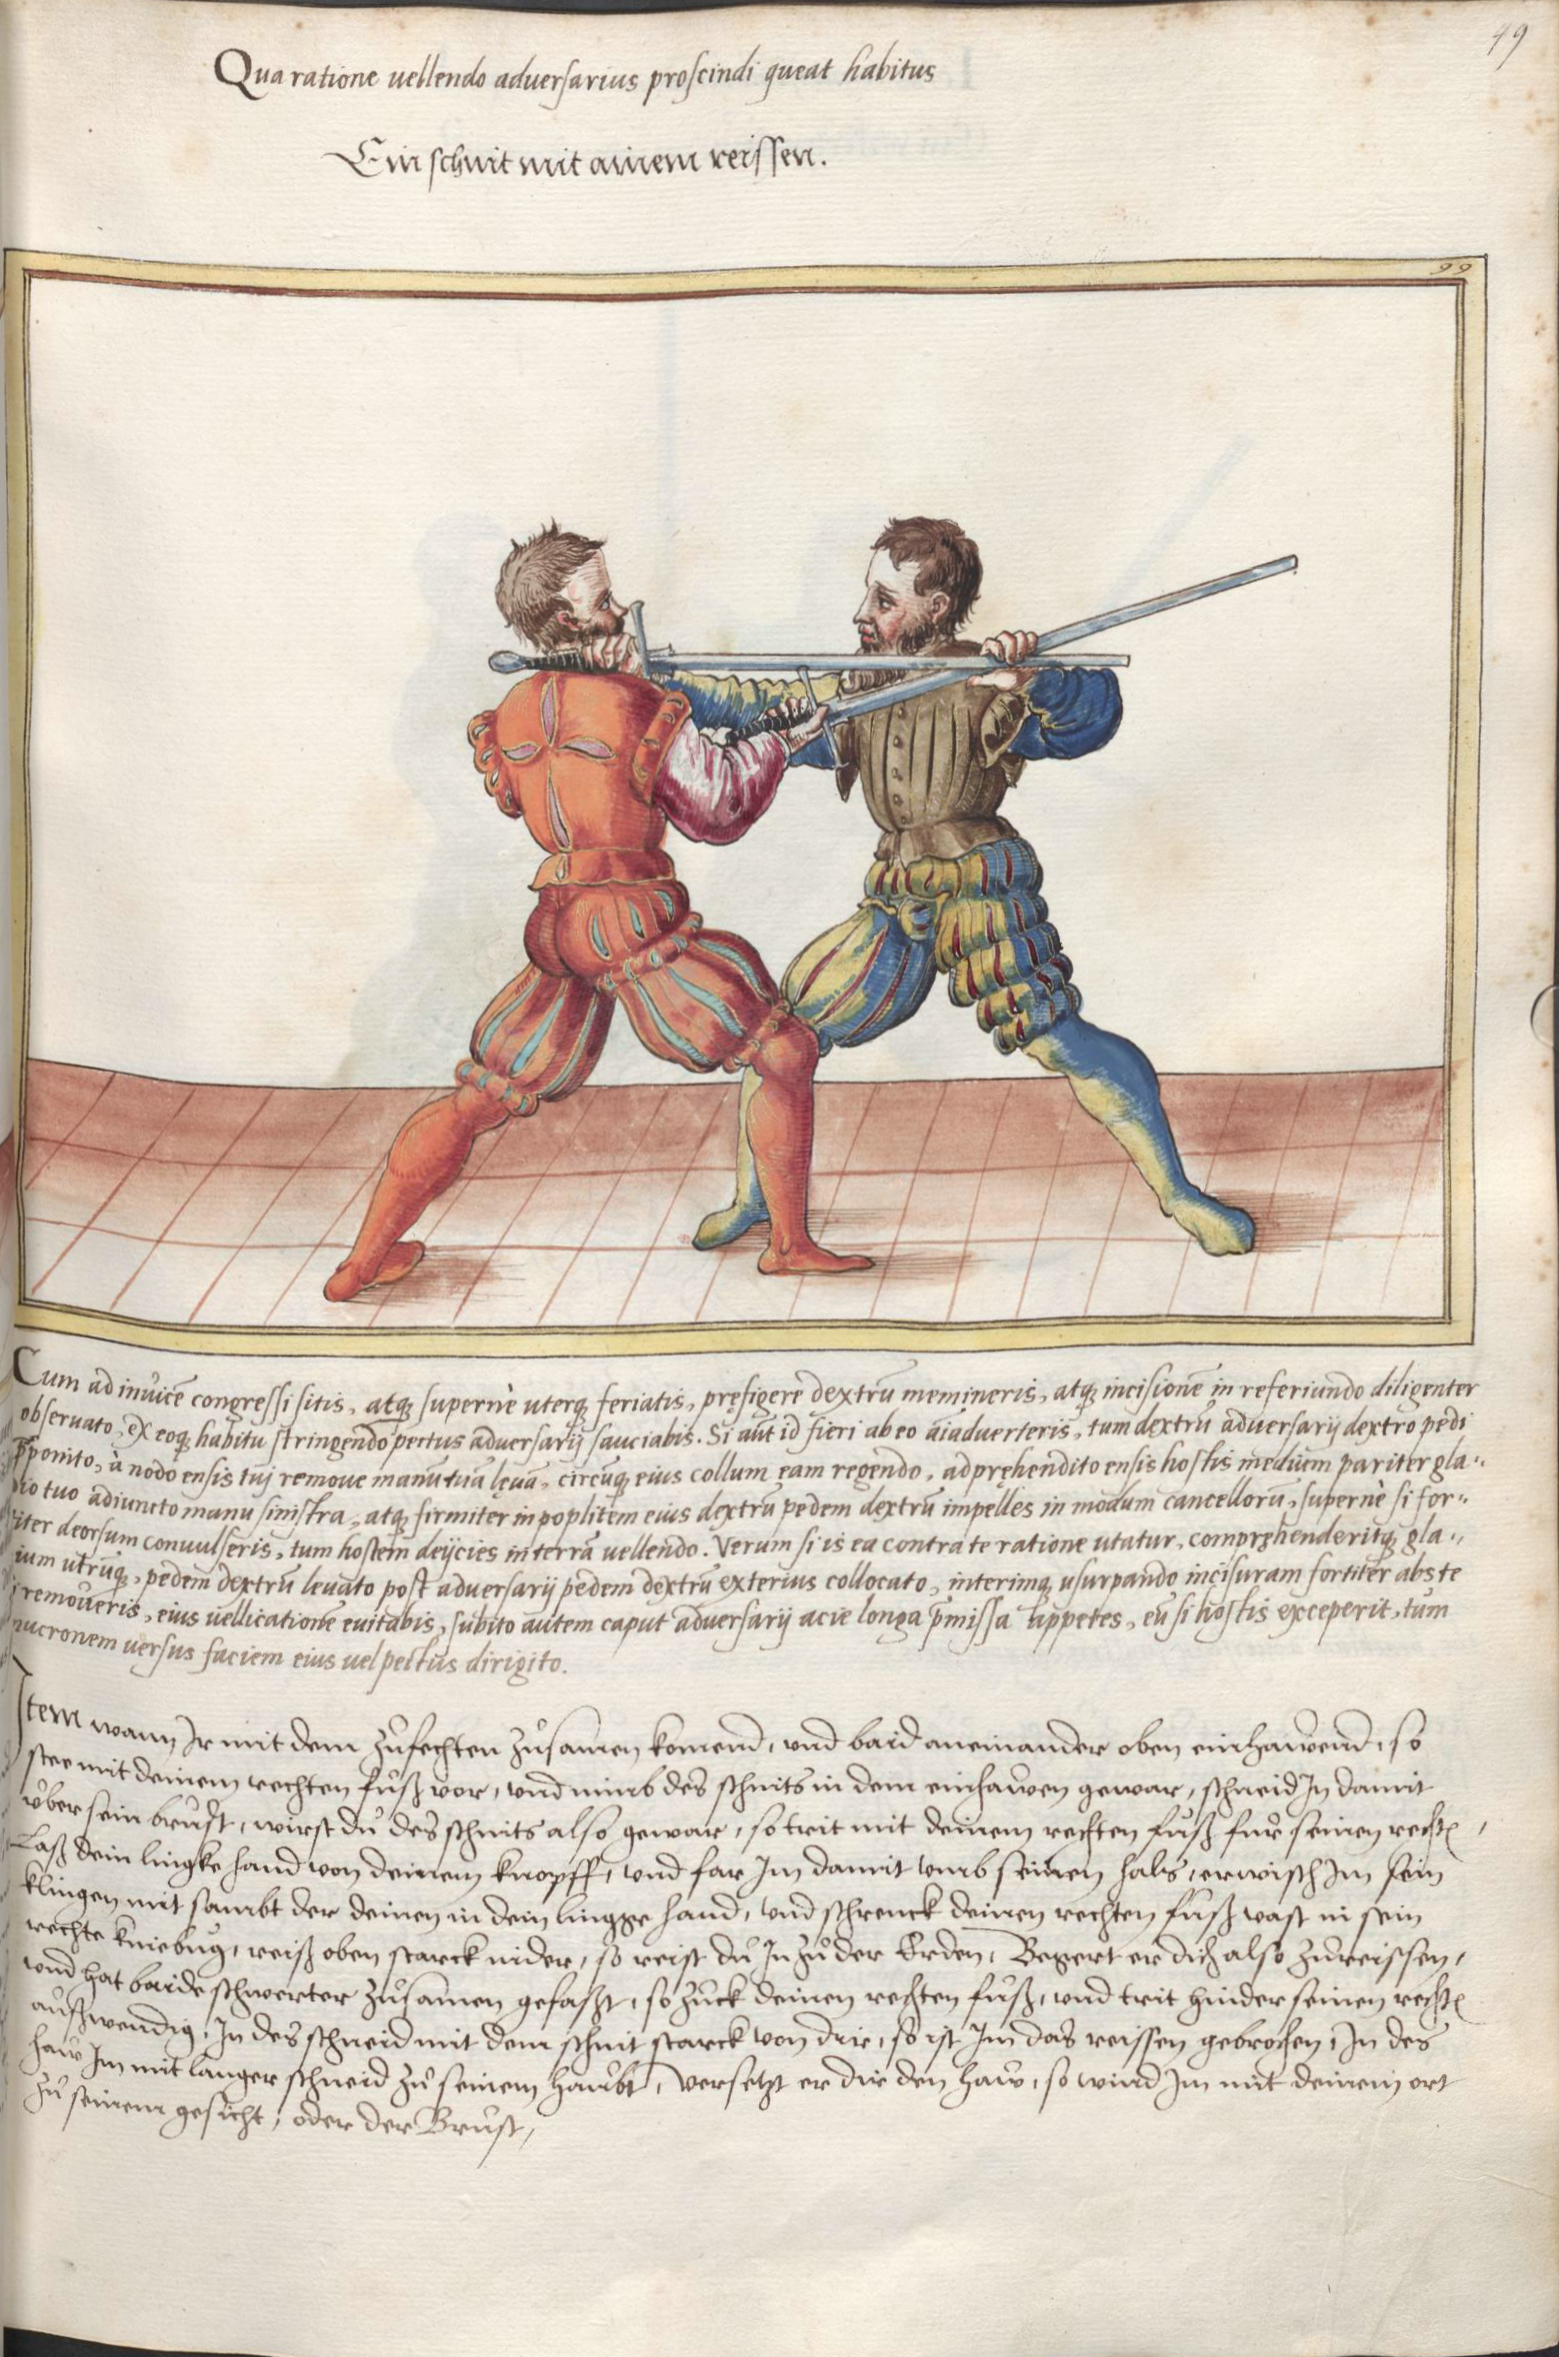 49
Qua ratione uellendo aduersarius proscindi queat habitus
Ein schnit mit ainem reissen.
99
Cum ad inuicē congressi sitis, atq; supernè uterq; feriatis, pręfigere dextrū memineris, atq; incisionē in referiundo diligenter
obseruato, ex eoq; habitu stringendo pectus aduersarij sauciabis. Si aūt id fieri ab eo aīaduerteris, tum dextrū aduersarij dextro pedi
p̄ponito, à nodo ensis tuj remoue manū tuā lęuā, circūq; eius collum eam regendo, adpręhendito ensis hostis medium pariter gla-
dio tuo adiuncto manu sinistra, atq; firmiter in poplitem eius dextrū pedem dextrū impelles in modum cancellorū, supernè si for-
titer deorsum conuulseris, tum hostem deijcies in terrā uellendo. Verum si is ea contra te ratione utatur, compręhenderitq; gla-
dium utrūq;, pedem dextrū leuato post aduersarij pedem dextrū exterius collocato, interimq; usurpando incisuram fortiter abs te
si remoueris, eius uellicationē euitabis, subito autem caput aduersarij acie longa p̄missa appetes, eū si hostis exceperit, tum
mucronem uersus faciem eius uel pectus dirigito.
Item wann Ir mit dem zůfechten zůsamen komend, und baid aneinander oben einhawend, so
stee mit deinem rechten fůß vor, und nimb des schnits in dem einhawen gewar, schneid In damit
über sein brust, wirst du des schnits also gewar, so trit mit deinem rechten fůß für seinen recht,
Laß dein lingke hand von deinem knopff, und far Im damit umb seinen hals, erwisch Im sein
klingen mit sambt der deinen in dein lingge hand, und schrenck deinen rechten fůß vast in sein
rechte kniebug, reiß oben starck nider, so reist du In zů der Erden, Begert er dich also zůreissen,
und hat baide schwerter zůsamen gefaßt, so zuck deinen rechten fůß, und trit hinder seinen recht
außwendig, In des schneid mit dem schnit starck von dir, so ist Im das reissen gebrochen, In des
haw Im mit langer schneid zů seinem haubt, versetzt er dir den haw, so wind Im mit deinem ort
zů seinem gesicht, oder der Brust,